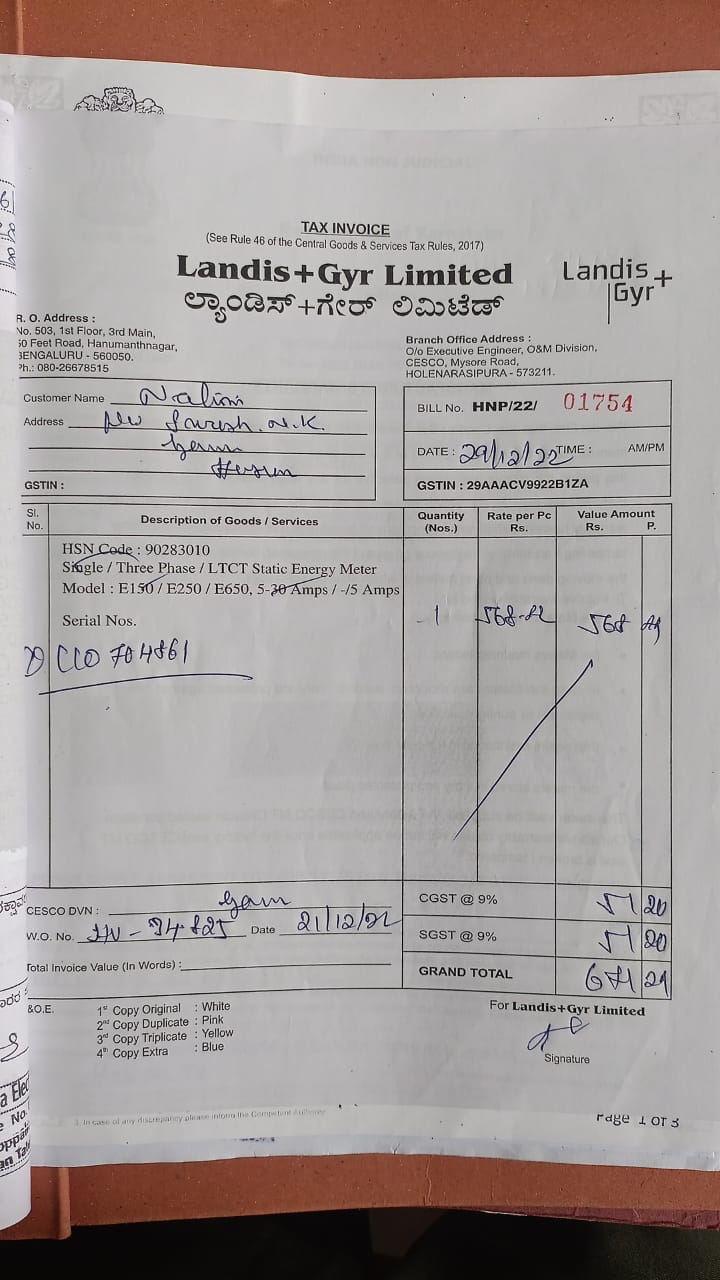 TAX INVOICE
(See Rule 46 of the Central Goods & Services Tax Rules, 2017)
Landis+Gyr Limited
ಲ್ಯಾಂಡಿಸ್+ಗೇರ್ ಲಿಮಿಟೆಡ್
Landis+
Gyr
R. O. Address :
No. 503, 1st Floor, 3rd Main,
60 Feet Road, Hanumanthnagar,
BENGALURU - 560050.
Ph.: 080-26678515
Branch Office Address :
O/o Executive Engineer, O&M Division,
CESCO, Mysore Road,
HOLENARASIPURA - 573211.
Customer Name Nalini
Address
GSTIN :
BILL No. HNP/22/ 01754
DATE : 29/12/22 TIME : AM/PM
GSTIN : 29AAACV9922B1ZA
Sl. No. Description of Goods / Services Quantity (Nos.) Rate per Pc Rs. Value Amount Rs. P.
HSN Code : 90283010
Single / Three Phase / LTCT Static Energy Meter
Model : E150 / E250 / E650, 5-30 Amps / -/5 Amps
Serial Nos. 1 568
CESCO DVN :
W.O. No. Date 21/12/22
Total Invoice Value (In Words) :
CGST @ 9% 51 20
SGST @ 9% 51 20
GRAND TOTAL
&O.E.
1st Copy Original : White
2nd Copy Duplicate : Pink
3rd Copy Triplicate : Yellow
4th Copy Extra : Blue
For Landis+Gyr Limited
Signature
3. In case of any discrepancy please inform the Competent Authority
Page 1 of 3